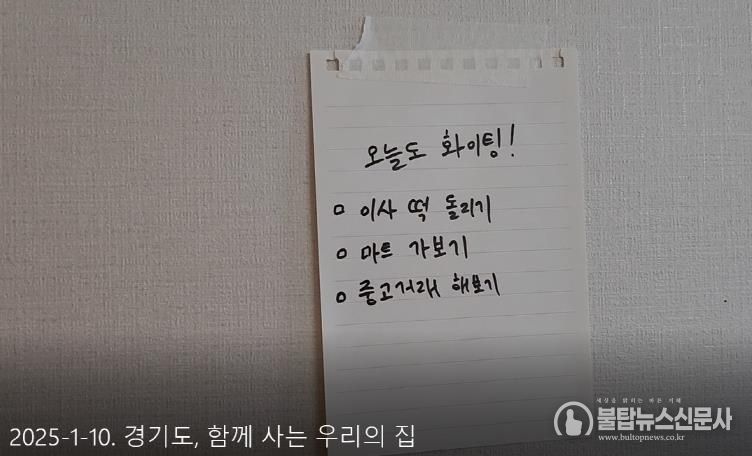 오늘도 화이팅!
□ 이사 떡 돌리기
○ 마트 가보기
○ 중고거래 해보기
세상을 밝히는 바른 지혜
불탑뉴스신문사
www.bultopnews.co.kr
2025-1-10. 경기도, 함께 사는 우리의 집